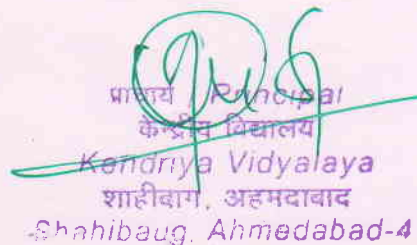 प्राचार्य / Principal
केन्द्रीय विद्यालय
Kendriya Vidyalaya
शाहीबाग, अहमदाबाद
Shahibaug, Ahmedabad-4